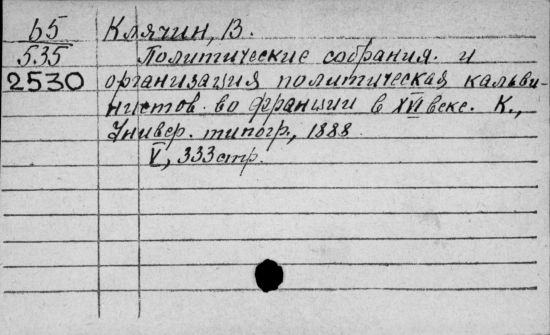 65 Клячин, В.
535 Политические собрания и
2530 организация политическая кальви-
нистов во Франции в XVI веке. К.,
Универ. типогр., 1888
V, 333 стр.